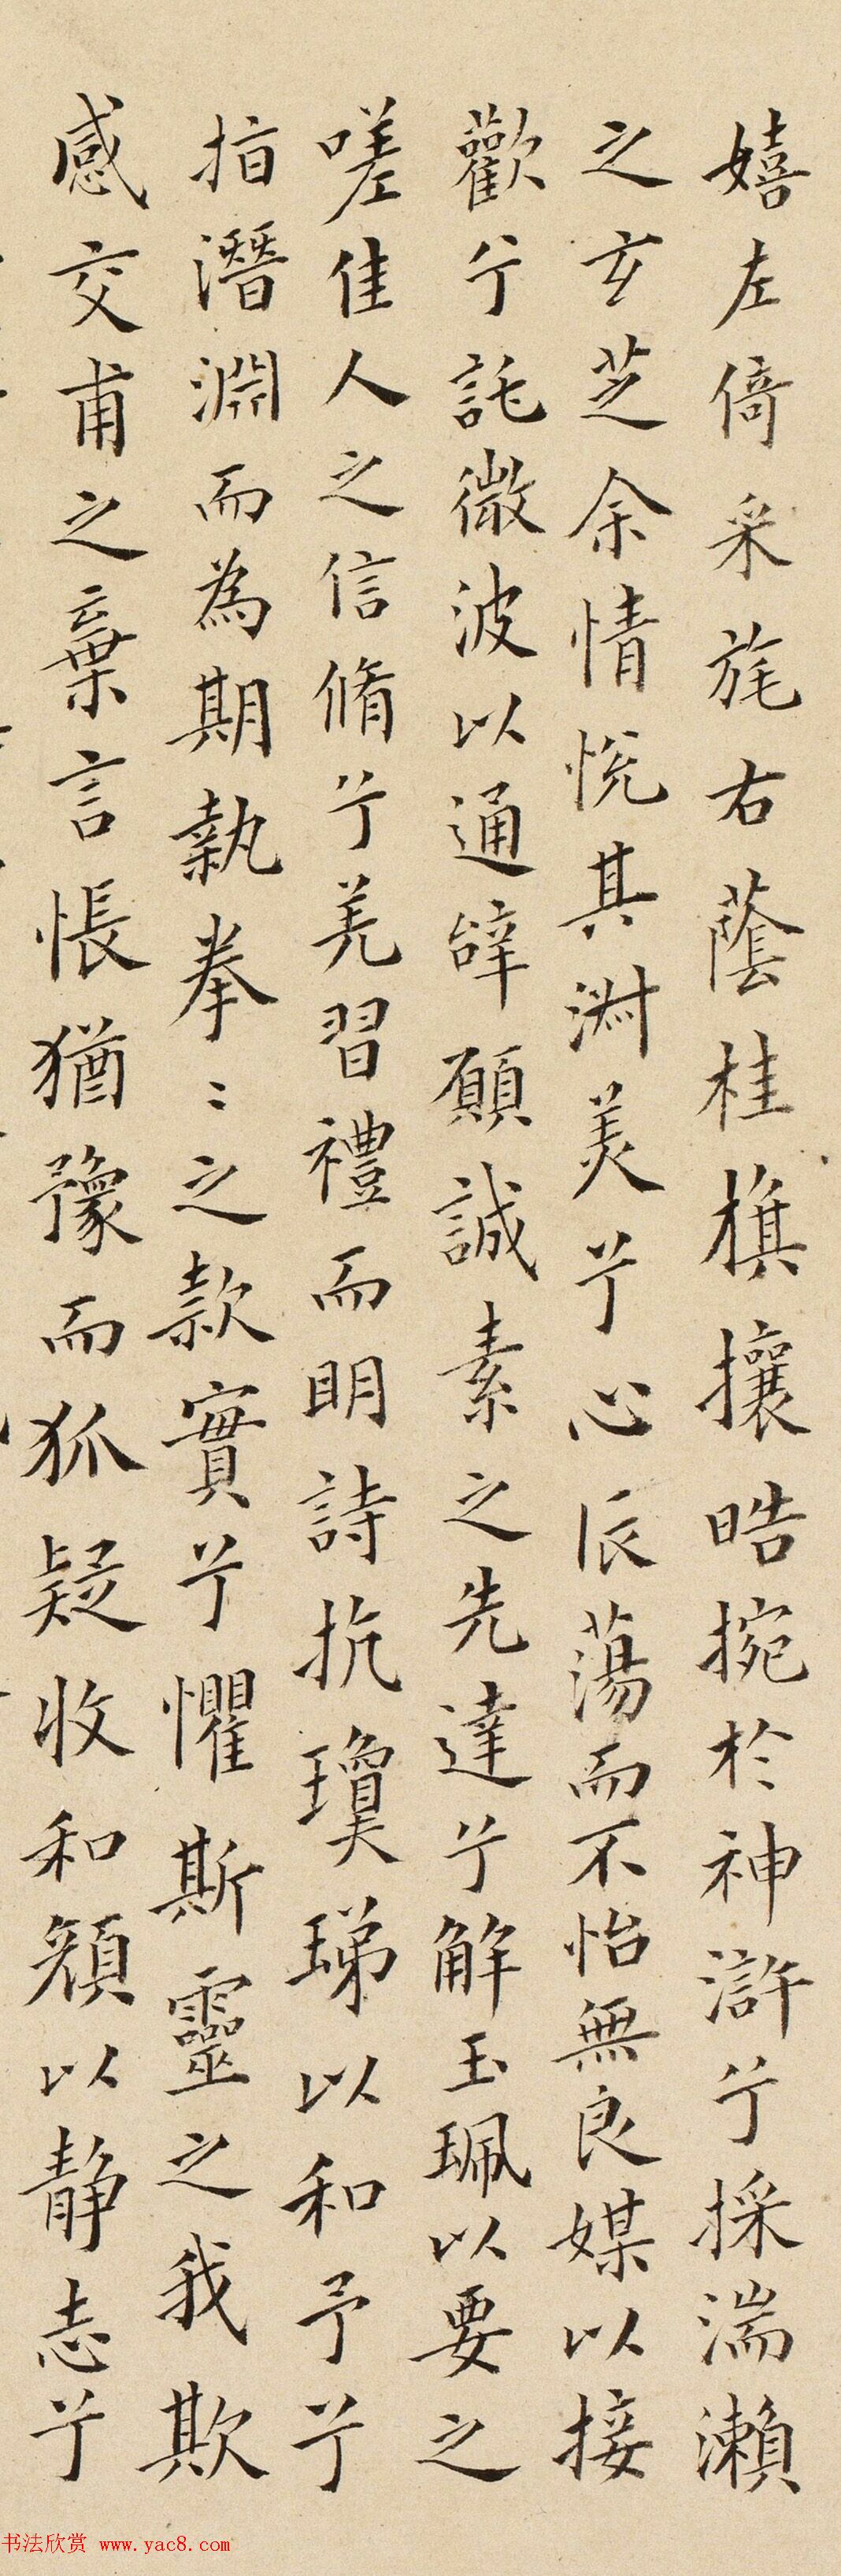 嬉左倚采旄右蔭桂旗攘晧捥於神滸兮採湍瀨
之玄芝余情悅其淑美兮心辰蕩而不怡無良媒以接
歡兮託微波以通辭願誠素之先達兮解玉珮以要之
嗟佳人之信脩兮羌習禮而明詩抗瓊珶以和予兮
指潛淵而為期執拳〻之款實兮懼斯靈之我欺
感交甫之棄言悵猶豫而狐疑收和顏以静志兮
书法欣赏 www.yac8.com